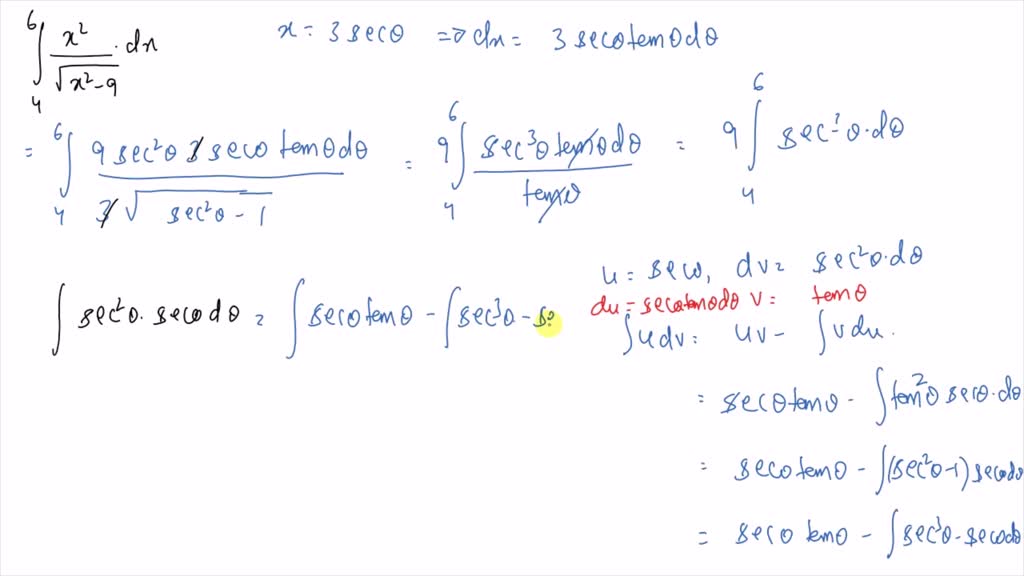 ∫₄⁶ x²/√(x²-9) · dx    x = 3 secθ ⇒ dx = 3 secθ tanθ dθ
= ∫₄⁶ 9 sec²θ 3 secθ tanθ dθ / 3√(sec²θ - 1) = 9 ∫₄⁶ sec³θ tanθ dθ / tanθ = 9 ∫₄⁶ sec³θ · dθ
u = secθ, dv = sec²θ · dθ
du = secθ tanθ dθ v = tanθ
∫ sec²θ · secθ dθ = ∫ secθ tanθ - ∫ sec³θ - s
∫ u dv = uv - ∫ v du.
= secθ tanθ - ∫ tan²θ secθ · dθ
= secθ tanθ - ∫ (sec²θ - 1) secθ dθ
= secθ tanθ - ∫ sec³θ - secθ dθ